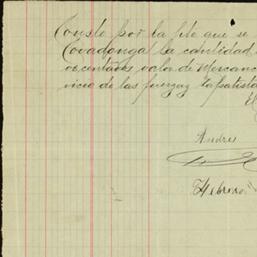 Conste por la pte que se
Covadonga la cantidad
centavos valor de Mercanc
vicio de las fuerzas Zapatista
El
Andres
Febrero